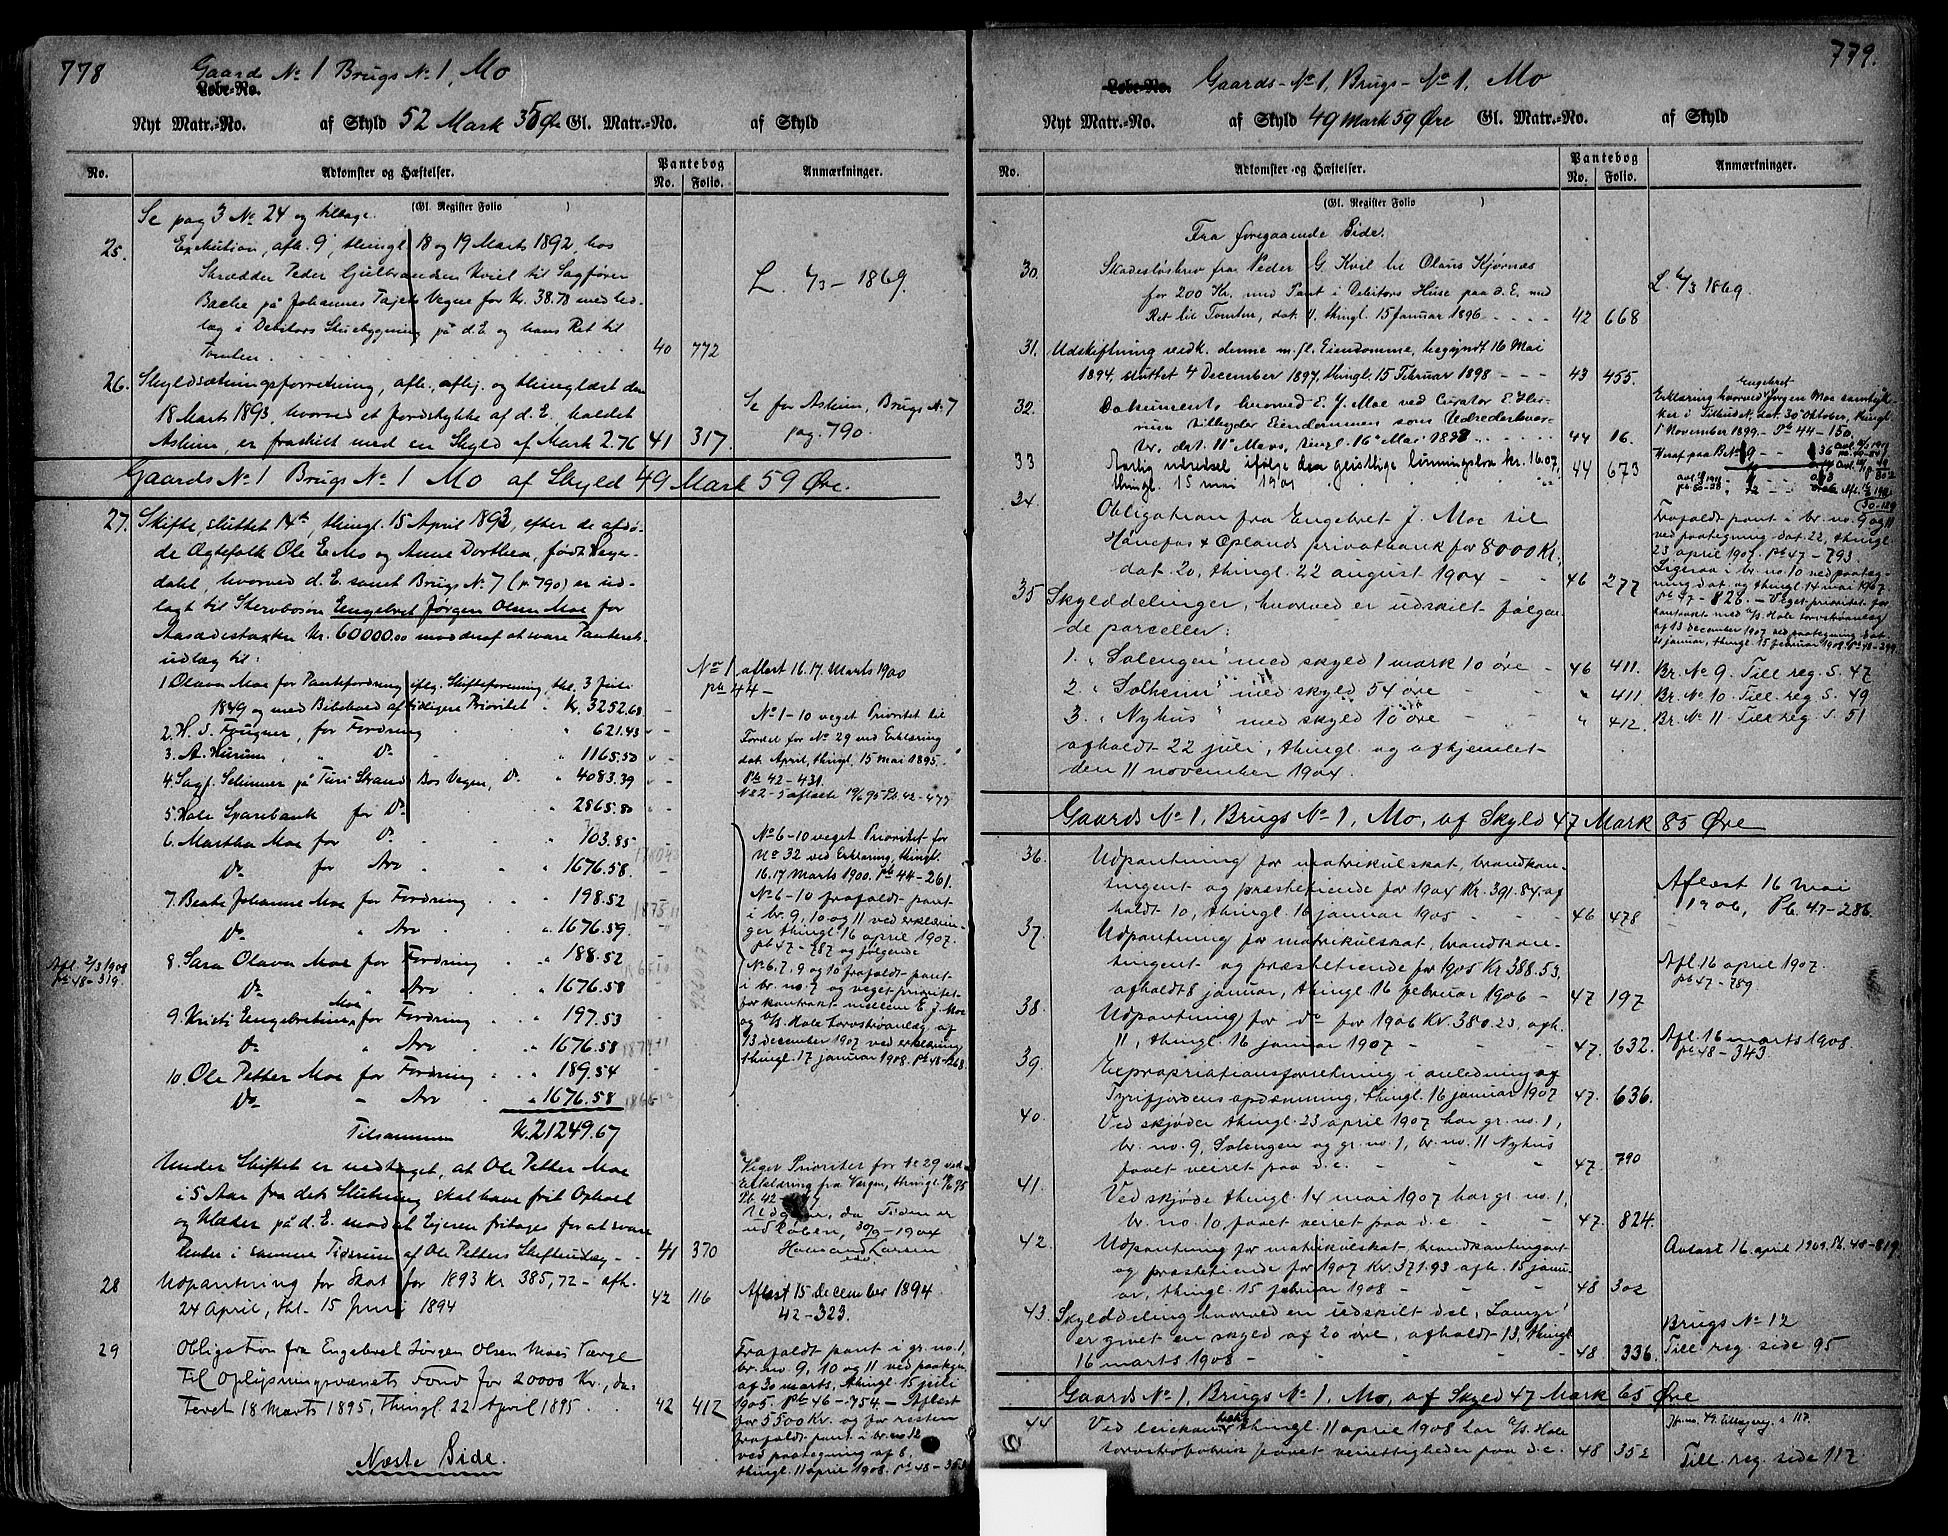 778
Gaards No 1 Brugs No 1, Mo
Løbe-No.
Nyt Matr.-No. af Skyld 52 Mark 35 Øre Gl. Matr.-No. af Skyld
No. Adkomster og Hæftelser. Pantebog No. Folio. Anmærkninger.
(Gl. Register Folio )
Se pag 3 No 24 og tilbage.
25. Exekution, afh. 9, thingl. 18 og 19 Marts 1892, hos
Skrædder Peder Gulbrandsen Kviel til Sagfører
Bache på Johannes Vegne for Kr. 38.73 med
i Debitors Stuebygning på d. E. og hans Ret til
Tomten. 40 772
L. 1/3 - 1869.
26. Skyldsætningsforretning, afh., afhj. og thinglæst den
18 Marts 1893, hvorved et Jordstykke af d. E., kaldet
Askim, er fraskilt med en Skyld af Mark 2.76 41 317.
Se for Askim, Brugs No 7
pag. 790.
Gaards No 1 Brugs No 1 Mo af Skyld 49 Mark 59 Øre.
27. Skifte, sluttet 14de, thingl. 15 April 1893, efter de afdø-
de Ægtefolk Ole E. Mo og Anne Dorthea, født
dahl, hvorved d. E. samt Brugs No 7 (p. 790) er ud-
lagt til Stervbosøn Engebret Jørgen Olsen Moe for
Aasædestaxten Kr. 60000.00 mod deraf at svare Panteret-
udlæg til:
1 Olava Moe for Panteforskrivning efter Skifteforretning, thl. 3 Juli
1849 og med Bibehold af tidligere Prioritet Kr. 3252.68
2. H. S. Fougner, for Fordring " 621.43
3. A. Hurum, " Do " 1165.50
4. Sagf. Schinner på Turi Strands Bos Vegne, Do " 4083.39
5. Hole Sparebank for Do " 2865.80
6. Martha Moe for Do " 103.85
Do for Arv " 1676.58.
7. Beate Johanne Moe for Fordring " 198.52
Do " Arv " 1676.59.
8. Sara Olava Moe for Fordring " 188.52
Do " Arv " 1676.58
9. Kristi Engebretine Moe for Fordring " 197.53
Do " Arv " 1676.58
10. Ole Petter Moe for Fordring " 189.54
Do " Arv " 1676.58
Tilsammen Kr. 21249.67
Afl. 2/3 1908
pb 48 - 319.
No 1 aflæst 16. 17. Marts 1900
pb 44 -
No 1-10 veget Prioritet til
Fordel for No 29 ved Erklæring
dat. April, thingl. 15 mai 1895.
Pb 42 - 431.
No 2-5 aflæste 14/6 95 Pb. 42 - 475
No 6-10 veget Prioritet for
No 32 ved Erklæring, thingl.
16. 17 Marts 1900. Pb 44 - 261.
No 6-10 frafaldt pant
i br. 9, 10 og 11 ved erklærin-
ger thingl. 16 april 1907.
pb 47 - 787 og følgende
No 6. 7. 9 og 10 frafaldt pant
i br. no. 7 og veget prioritet
for kontrakt mellem E. J. Moe
og A/S Hole torvstrøanlæg af
13 december 1907 ved erklæring
thingl. 17 januar 1908. Pb 48 - 268.
Under Skiftet er vedtaget, at Ole Petter Moe
i 5 Aar fra dets Slutning skal have frit Ophold
og Klæder på d. E. mod at Ejeren fritages for at svare
Renter i samme Tidsrum af Ole Petters Skifteudlæg 41 370
Viger Prioritet for No 29 ved
Erklæring fra Værgen, thingl. 15/6 95
Pb. 42 - 
Udgaar, da Tiden er
udløben, 30/9 - 1904
28 Udpantning for Skat for 1893 Kr. 385,72 - afh.
24 April, thl. 15 Juni 1894 42 116
Aflæst 15 december 1894
42 - 323.
29 Obligation fra Engebret Jørgen Olsen Moes Værge
til Oplysningsvæsnets Fond for 20000 Kr., da-
teret 18 Marts 1895, Thingl. 22 April 1895. 42 412
Frafaldt pant i gr. no. 1,
br. no. 9, 10 og 11 ved paategn.
af 30 marts, thingl. 15 juli
1905. Pb 46 - 754 - Aflæst
for 5500 Kr. og for resten
frafaldt pant i br. no 12
ved paategning af 8,
thingl. 11 april 1908. Pb 48 - 353
Næste Side.
779.
Løbe-No. Gaards-No 1, Brugs-No 1, Mo
Nyt Matr.-No. af Skyld 49 Mark 59 Øre Gl. Matr.-No. af Skyld
No. Adkomster og Hæftelser. Pantebog No. Folio. Anmærkninger.
(Gl. Register Folio )
Fra foregaaende Side.
30. Skadesløsbrev fra Peder G. Kvil til Olaus Kjørnæs
for 200 Kr. med Pant i Debitors Huse paa d. E. med
Ret til Tomten, dat. 4, thingl. 15 Januar 1896 42 668
L. 1/3 1869.
31. Udskiftning vedk. denne m. fl. Eiendomme, begyndt 16 Mai
1894, sluttet 4 December 1897, thingl. 15 Februar 1898 43 455.
32. Dokument, hvorved E. J. Moe ved Curator E. Her-
tilbyder Eiendommen som
dat. 11 Mars, tingl. 16 Mai 1898 44 16.
Erklæring hvorved Engebret Jørgen Moe samtyk-
ker i Tilbudet, dat. 30 Oktober, thingl.
1 November 1899. - Pb 44 - 150.
33 Aarlig udredsel ifølge den geistlige lønningslov kr. 16.07,
thingl. 15 mai 1901 44 673
34 Obligation fra Engebret J. Moe til
Hønefos & Oplands privatbank for 8000 Kr.,
dat. 20, thingl. 22 august 1904 46 277
Frafaldt pant i br. no. 9 og 11
ved paategning dat. 22, thingl.
23 april 1907. Pb 47 - 793.
Ligesaa i br. no. 10 ved paateg-
ning dat. og thingl. 14 mai 1907
pb 47 - 826. - Veget prioritet for
kontrakt med A/S Hole torvstrøanlæg
af 13 december 1907 ved paategning dat.
2 januar, thingl. 15 februar 1908. Pb 48 - 299
35 Skylddelinger, hvorved er udskilt følgen-
de parceller:
1. "Solengen" med skyld 1 mark 10 øre 46 411. Br. No 9. Till. reg. S. 47
2. "Solheim" med skyld 54 øre " 411. Br. No 10. Till. reg. S. 49
3. "Nyhus" med skyld 10 øre " 412. Br. No 11 Till reg. S. 51
afholdt 22 juli, thingl. og afhjemlet
den 11 november 1904.
Gaards No 1, Brugs No 1, Mo, af Skyld 47 Mark 85 Øre
36. Udpantning for matrikulskat, brandkon-
tingent og præstetiende for 1904 Kr. 391.84, af-
holdt 10, thingl. 16 januar 1905 46 478
Aflæst 16 mai
1906, Pb. 47 - 286.
37. Udpantning for matrikulskat, brandkon-
tingent og præstetiende for 1905 Kr 388.53,
afholdt 8 januar, thingl. 16 februar 1906 47 197
Afl. 16 april 1907.
pb 47 - 789.
38. Udpantning for do for 1906 Kr. 380.23, afh.
11, thingl. 16 januar 1907 47. 632.
Afl. 16 marts 1908.
pb 48 - 343
39. Expropriationsforretning i anledning af
Tyrifjordens opdæmning, thingl. 16 januar 1907 47. 636.
40. Ved skjøder thingl. 23 april 1907 har gr. no. 1,
br. no. 9, Solengen og gr. no. 1, br. no. 11 Nyhus
faaet veiret paa d. e. 47. 790
41. Ved skjøde thingl. 14 mai 1907 har gr. no. 1,
br. no. 10, faaet veiret paa d. e. 47. 824.
42. Udpantning for matrikulskat, brandkontingent
og præstetiende for 1907 Kr. 371.93 afh. 15 janu-
ar, thingl. 15 februar 1908 48 302
Avlæst 16 april 1909. Pb. 48 - 819.
43. Skylddeling hvorved en udskilt del,
er givet en skyld af 20 øre, afholdt 13, thingl.
16 marts 1908 48 336.
Brugs No 12
Till. reg. side 95
Gaards No 1, Brugs No 1, Mo, af Skyld 47 Mark 65 Øre
44 Ved thingl. 11 april 1908 har A/S Hole
torvstrøfabrik faaet rettigheder paa d. e. 48 352
Till. reg. side 117